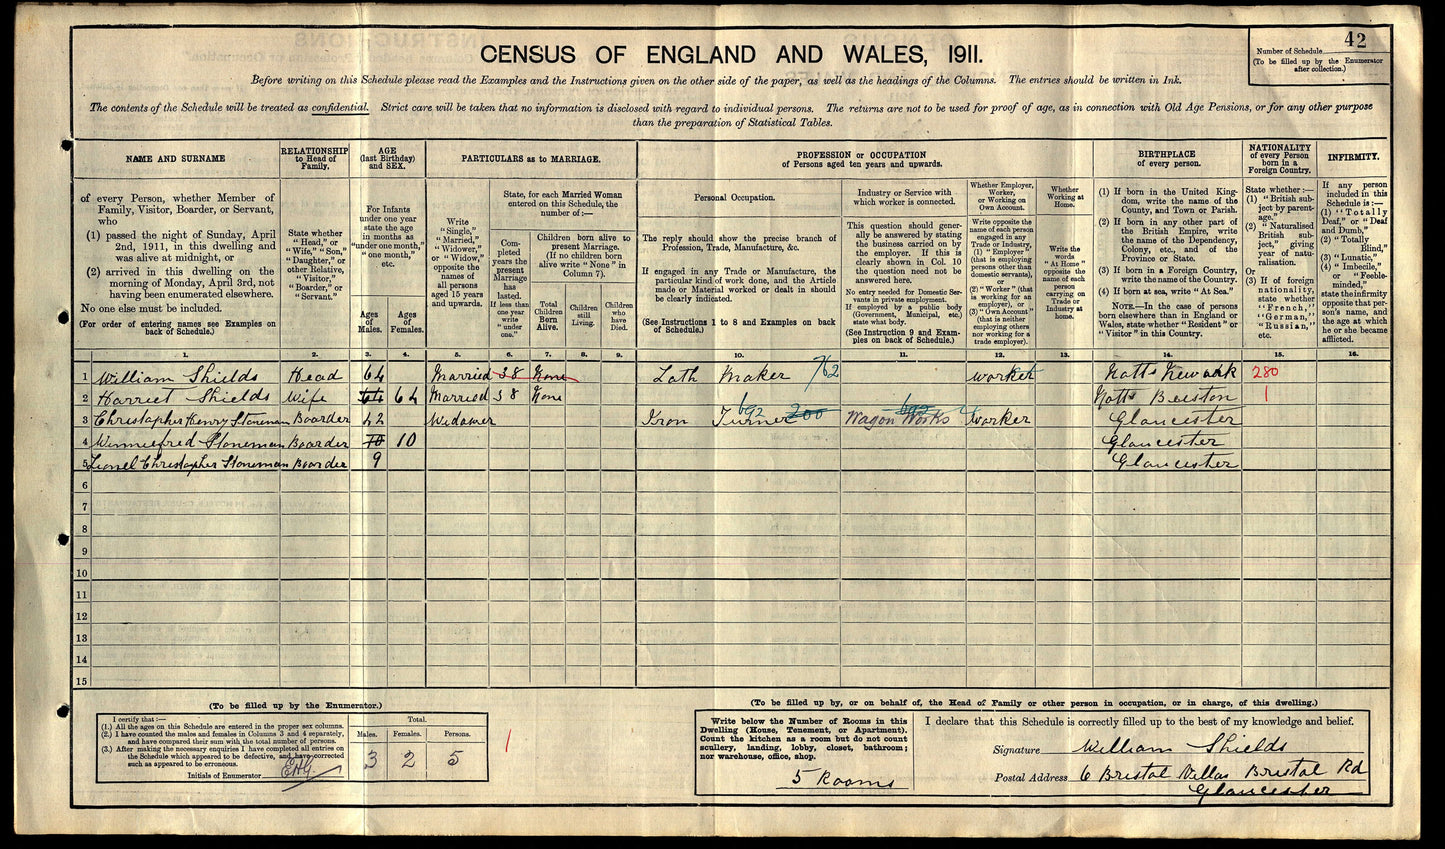 CENSUS OF ENGLAND AND WALES, 1911.
Number of Schedule 42
(To be filled up by the Enumerator
after collection.)
Before writing on this Schedule please read the Examples and the Instructions given on the other side of the paper, as well as the headings of the Columns. The entries should be written in Ink.
The contents of the Schedule will be treated as confidential. Strict care will be taken that no information is disclosed with regard to individual persons. The returns are not to be used for proof of age, as in connection with Old Age Pensions, or for any other purpose
than the preparation of Statistical Tables.
NAME AND SURNAME
of every Person, whether Member of
Family, Visitor, Boarder, or Servant,
who
(1) passed the night of Sunday, April
2nd, 1911, in this dwelling and
was alive at midnight, or
(2) arrived in this dwelling on the
morning of Monday, April 3rd, not
having been enumerated elsewhere.
No one else must be included.
(For order of entering names see Examples on
back of Schedule.)
RELATIONSHIP
to Head of
Family.
State whether
"Head," or
"Wife," "Son,"
"Daughter," or
other Relative,
"Visitor,"
"Boarder," or
"Servant."
AGE
(last Birthday)
and SEX.
For Infants
under one year
state the age
in months as
"under one month,"
"one month,"
etc.
Ages
of
Males.
Ages
of
Females.
PARTICULARS as to MARRIAGE.
Write
"Single,"
"Married,"
"Widower,"
or "Widow,"
opposite the
names of
all persons
aged 15 years
and upwards.
State, for each Married Woman
entered on this Schedule, the
number of:—
Completed
years the
present
Marriage
has
lasted.
If less than
one year
write
"under
one."
Children born alive to
present Marriage.
(If no children born
alive write "None" in
Column 7).
Total
Children
Born
Alive.
Children
still
Living.
Children
who
have
Died.
PROFESSION or OCCUPATION
of Persons aged ten years and upwards.
Personal Occupation.
The reply should show the precise branch of
Profession, Trade, Manufacture, &c.
If engaged in any Trade or Manufacture, the
particular kind of work done, and the Article
made or Material worked or dealt in should
be clearly indicated.
(See Instructions 1 to 8 and Examples on back
of Schedule.)
Industry or Service with
which worker is connected.
This question should generally
be answered by stating
the business carried on by
the employer. If this is
clearly shown in Col. 10
the question need not be
answered here.
No entry needed for Domestic Servants
in private employment.
If employed by a public body
(Government, Municipal, etc.)
state what body.
(See Instruction 9 and Examples
on back of Schedule.)
Whether Employer,
Worker,
or Working on
Own Account.
Write opposite the
name of each person
engaged in any
Trade or Industry,
(1) "Employer"
(that is employing
persons other than
domestic servants),
or
(2) "Worker" (that
is working for an
employer), or
(3) "Own Account"
(that is neither
employing others
nor working for a
trade employer).
Whether
Working at
Home.
Write the
words
"At Home"
opposite the
name of each
person
carrying on
Trade or
Industry at
home.
BIRTHPLACE
of every person.
(1) If born in the United Kingdom,
write the name of the
County, and Town or Parish.
(2) If born in any other part of
the British Empire, write
the name of the Dependency,
Colony, etc., and of the
Province or State.
(3) If born in a Foreign Country,
write the name of the Country.
(4) If born at sea, write "At Sea."
NOTE.—In the case of persons
born elsewhere than in England or
Wales, state whether "Resident" or
"Visitor" in this Country.
NATIONALITY
of every Person
born in a
Foreign Country.
State whether:—
(1) "British subject
by parentage."
(2) "Naturalised
British subject,"
giving
year of naturalisation.
Or
(3) If of foreign
nationality,
state whether
"French,"
"German,"
"Russian,"
etc.
INFIRMITY.
If any person
included in this
Schedule is:—
(1) "Totally
Deaf," or "Deaf
and Dumb,"
(2) "Totally
Blind,"
(3) "Lunatic,"
(4) "Imbecile,"
or "Feeble-
minded,"
state the infirmity
opposite that person's
name, and
the age at which
he or she became
afflicted.
1. 2. 3. 4. 5. 6. 7. 8. 9. 10. 11. 12. 13. 14. 15. 16.
1 William Shields Head 64 Married 38 None Lath Maker 762 Worker Notts Newark 280
2 Harriet Shields Wife 64 64 Married 38 None Notts Beeston 1
3 Christopher Henry Stoneman Boarder 42 Widower Iron Turner 692 200 Wagon Works 692 Worker Gloucester
4 Winniefred Stoneman Boarder 10 10 Gloucester
5 Lionel Christopher Stoneman Boarder 9 Gloucester
6
7
8
9
10
11
12
13
14
15
(To be filled up by the Enumerator.)
I certify that:—
(1.) All the ages on this Schedule are entered in the proper sex columns.
(2.) I have counted the males and females in Columns 3 and 4 separately,
and have compared their sum with the total number of persons.
(3.) After making the necessary enquiries I have completed all entries on
the Schedule which appeared to be defective, and have corrected
such as appeared to be erroneous.
Initials of Enumerator EHG
Total.
Males. Females. Persons.
3 2 5
1
(To be filled up by, or on behalf of, the Head of Family or other person in occupation, or in charge, of this dwelling.)
Write below the Number of Rooms in this
Dwelling (House, Tenement, or Apartment).
Count the kitchen as a room but do not count
scullery, landing, lobby, closet, bathroom;
nor warehouse, office, shop.
5 Rooms
I declare that this Schedule is correctly filled up to the best of my knowledge and belief.
Signature William Shields
Postal Address 6 Bristol Villas Bristol Rd
Gloucester